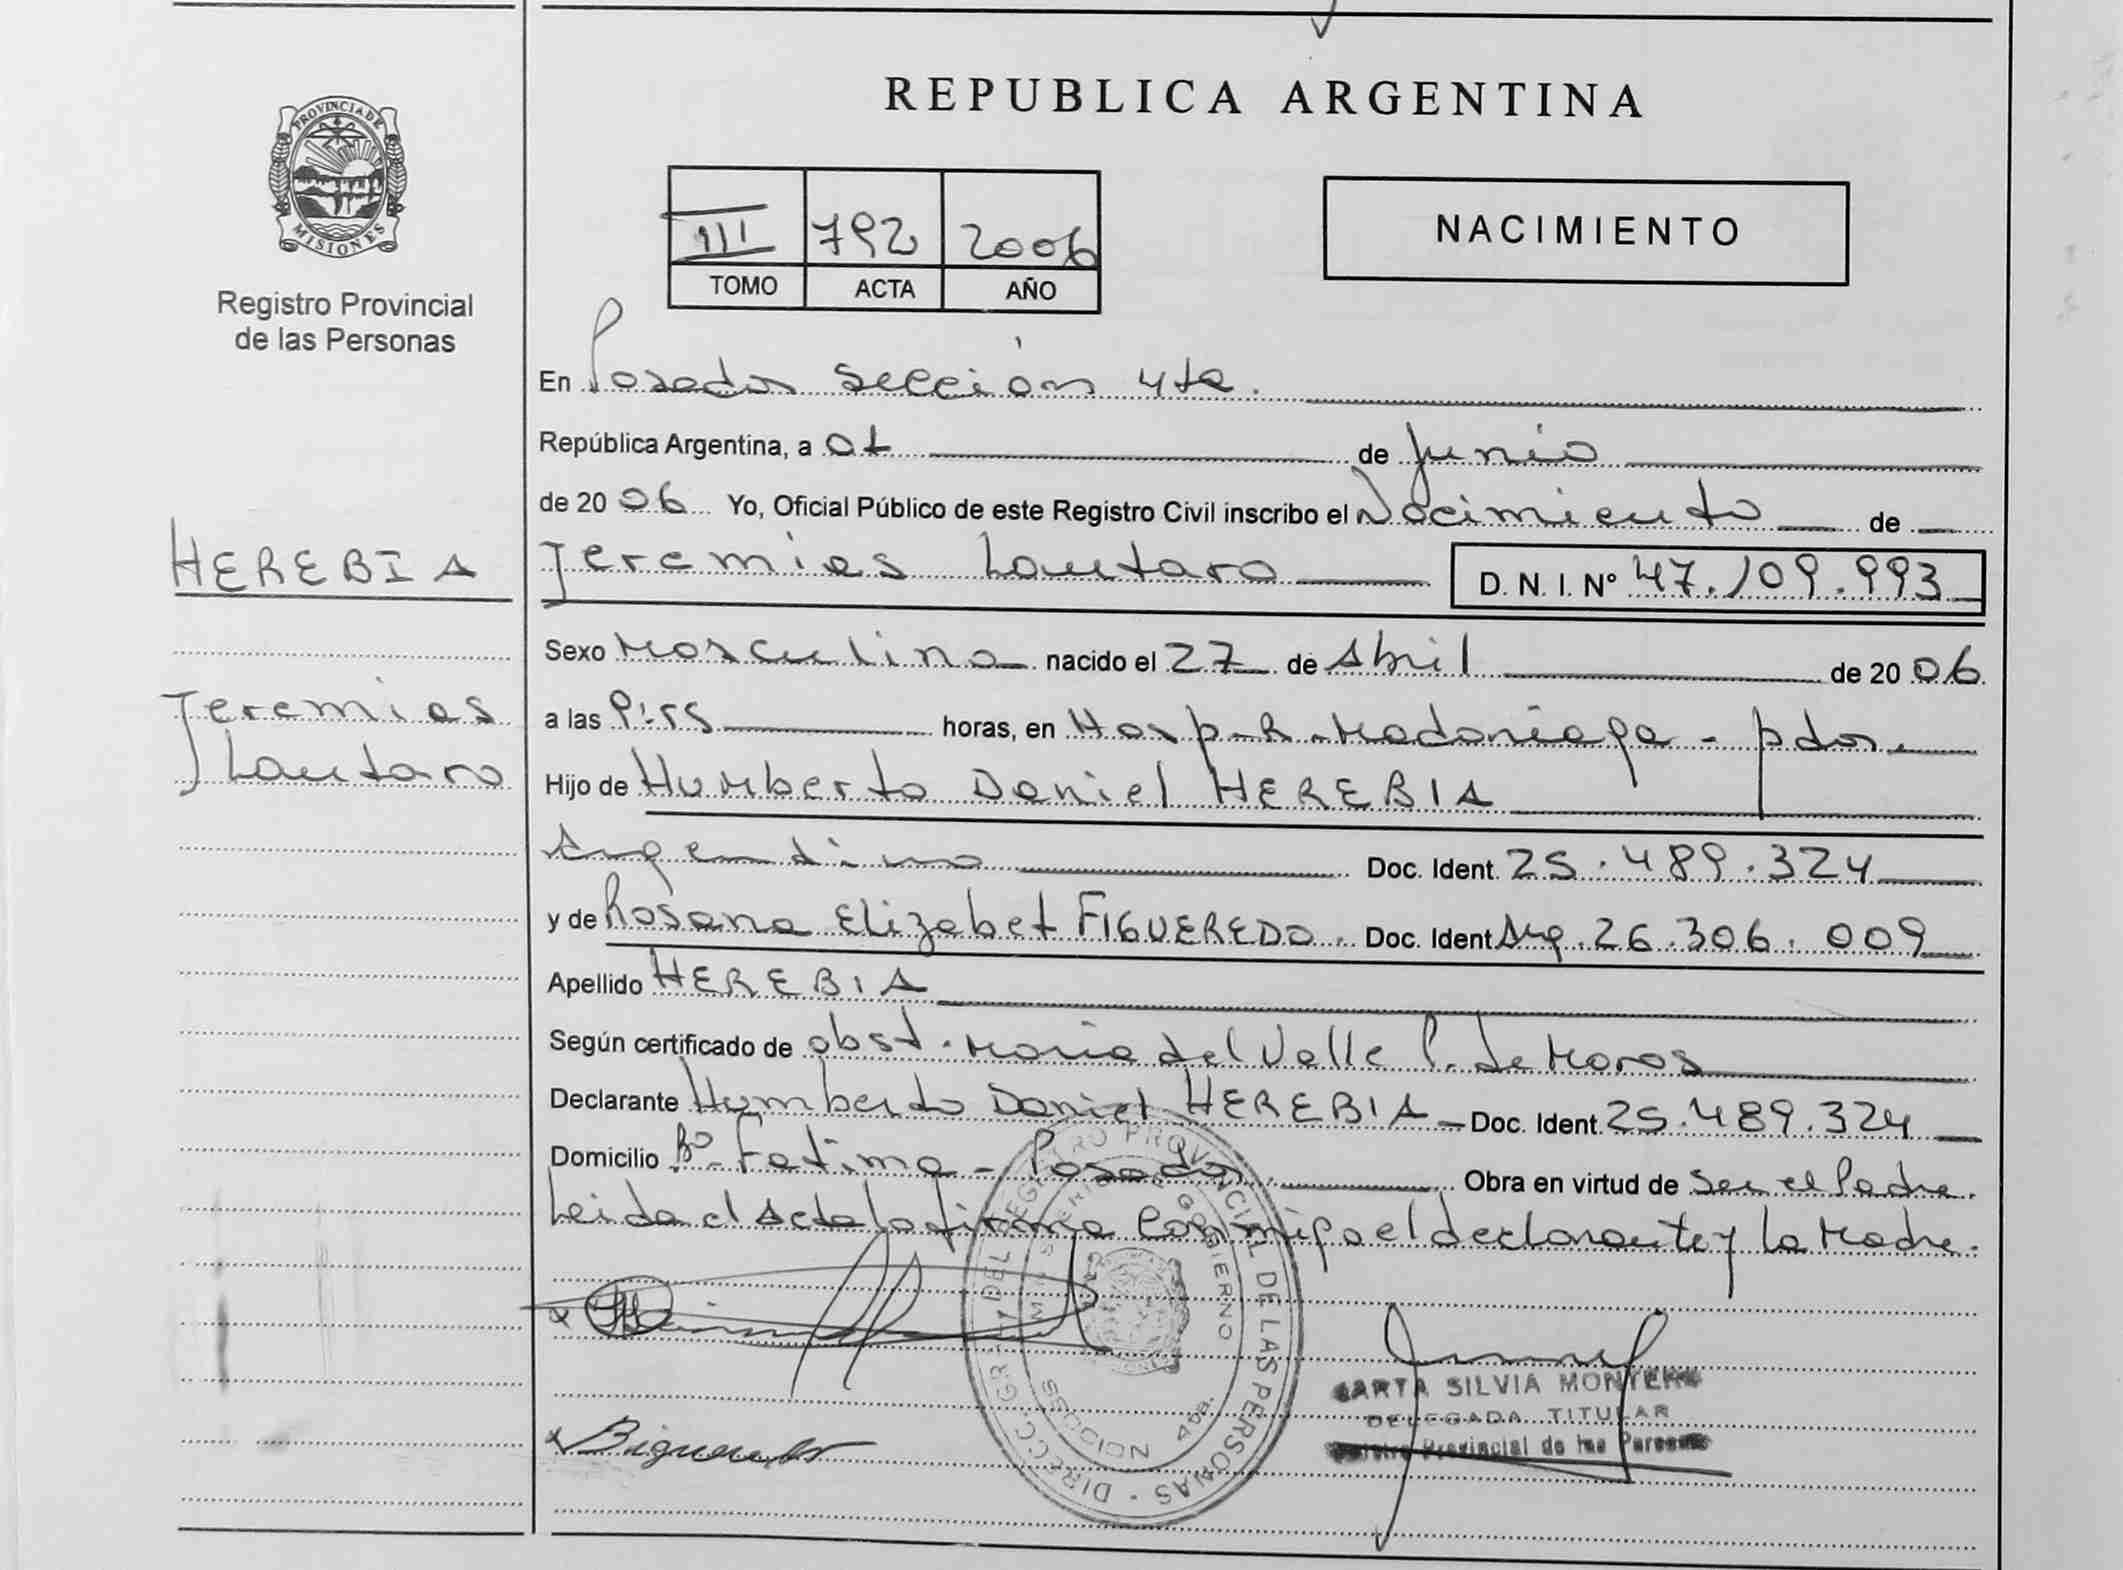 REPUBLICA ARGENTINA
PROVINCIA DE MISIONES
Registro Provincial
de las Personas
III 792 2006
TOMO ACTA AÑO
NACIMIENTO
En Posadas sección 4ta.
República Argentina, a 01 de Junio
de 2006 Yo, Oficial Público de este Registro Civil inscribo el Nacimiento de
HEREBIA
Jeremias Lautaro D. N. I. Nº 47.109.993
Sexo Masculino nacido el 27 de Abril de 2006
Jeremias
Lautaro
a las 9:55 horas, en Hosp. R. Madariaga - pdas.
Hijo de Humberto Daniel HEREBIA
Argentino Doc. Ident. 25.489.324
y de Rosana Elizabet FIGUEREDO. Doc. Ident Arg. 26.306.009
Apellido HEREBIA
Según certificado de obst. Maria del Valle P. de Moros
Declarante Humberto Daniel HEREBIA Doc. Ident. 25.489.324
Domicilio Bº Fatima - Posadas Obra en virtud de ser el Padre.
Leida el Acta la firma conmigo el declarante y la Madre.
DIRECC. GRAL. DEL REGISTRO PROVINCIAL DE LAS PERSONAS
GOBIERNO
SILVIA MONTERO
DELEGADA TITULAR
Provincial de las Personas